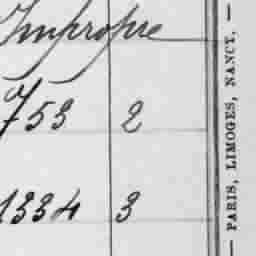 Impropre
753 2
1334 3
— PARIS, LIMOGES, NANCY. —